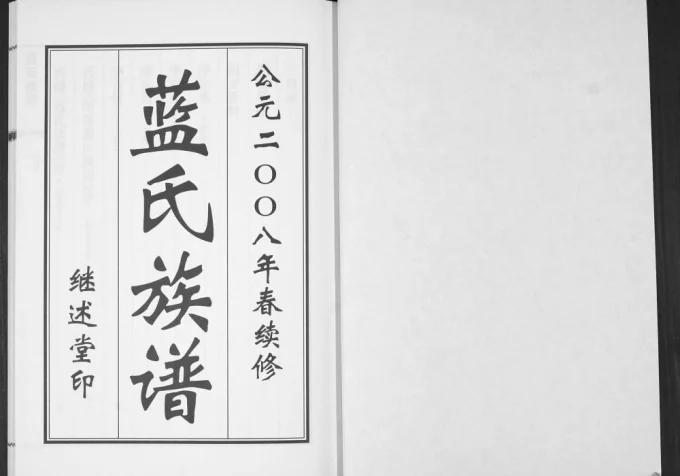 公元二〇〇八年春续修
蓝氏族谱
继述堂印